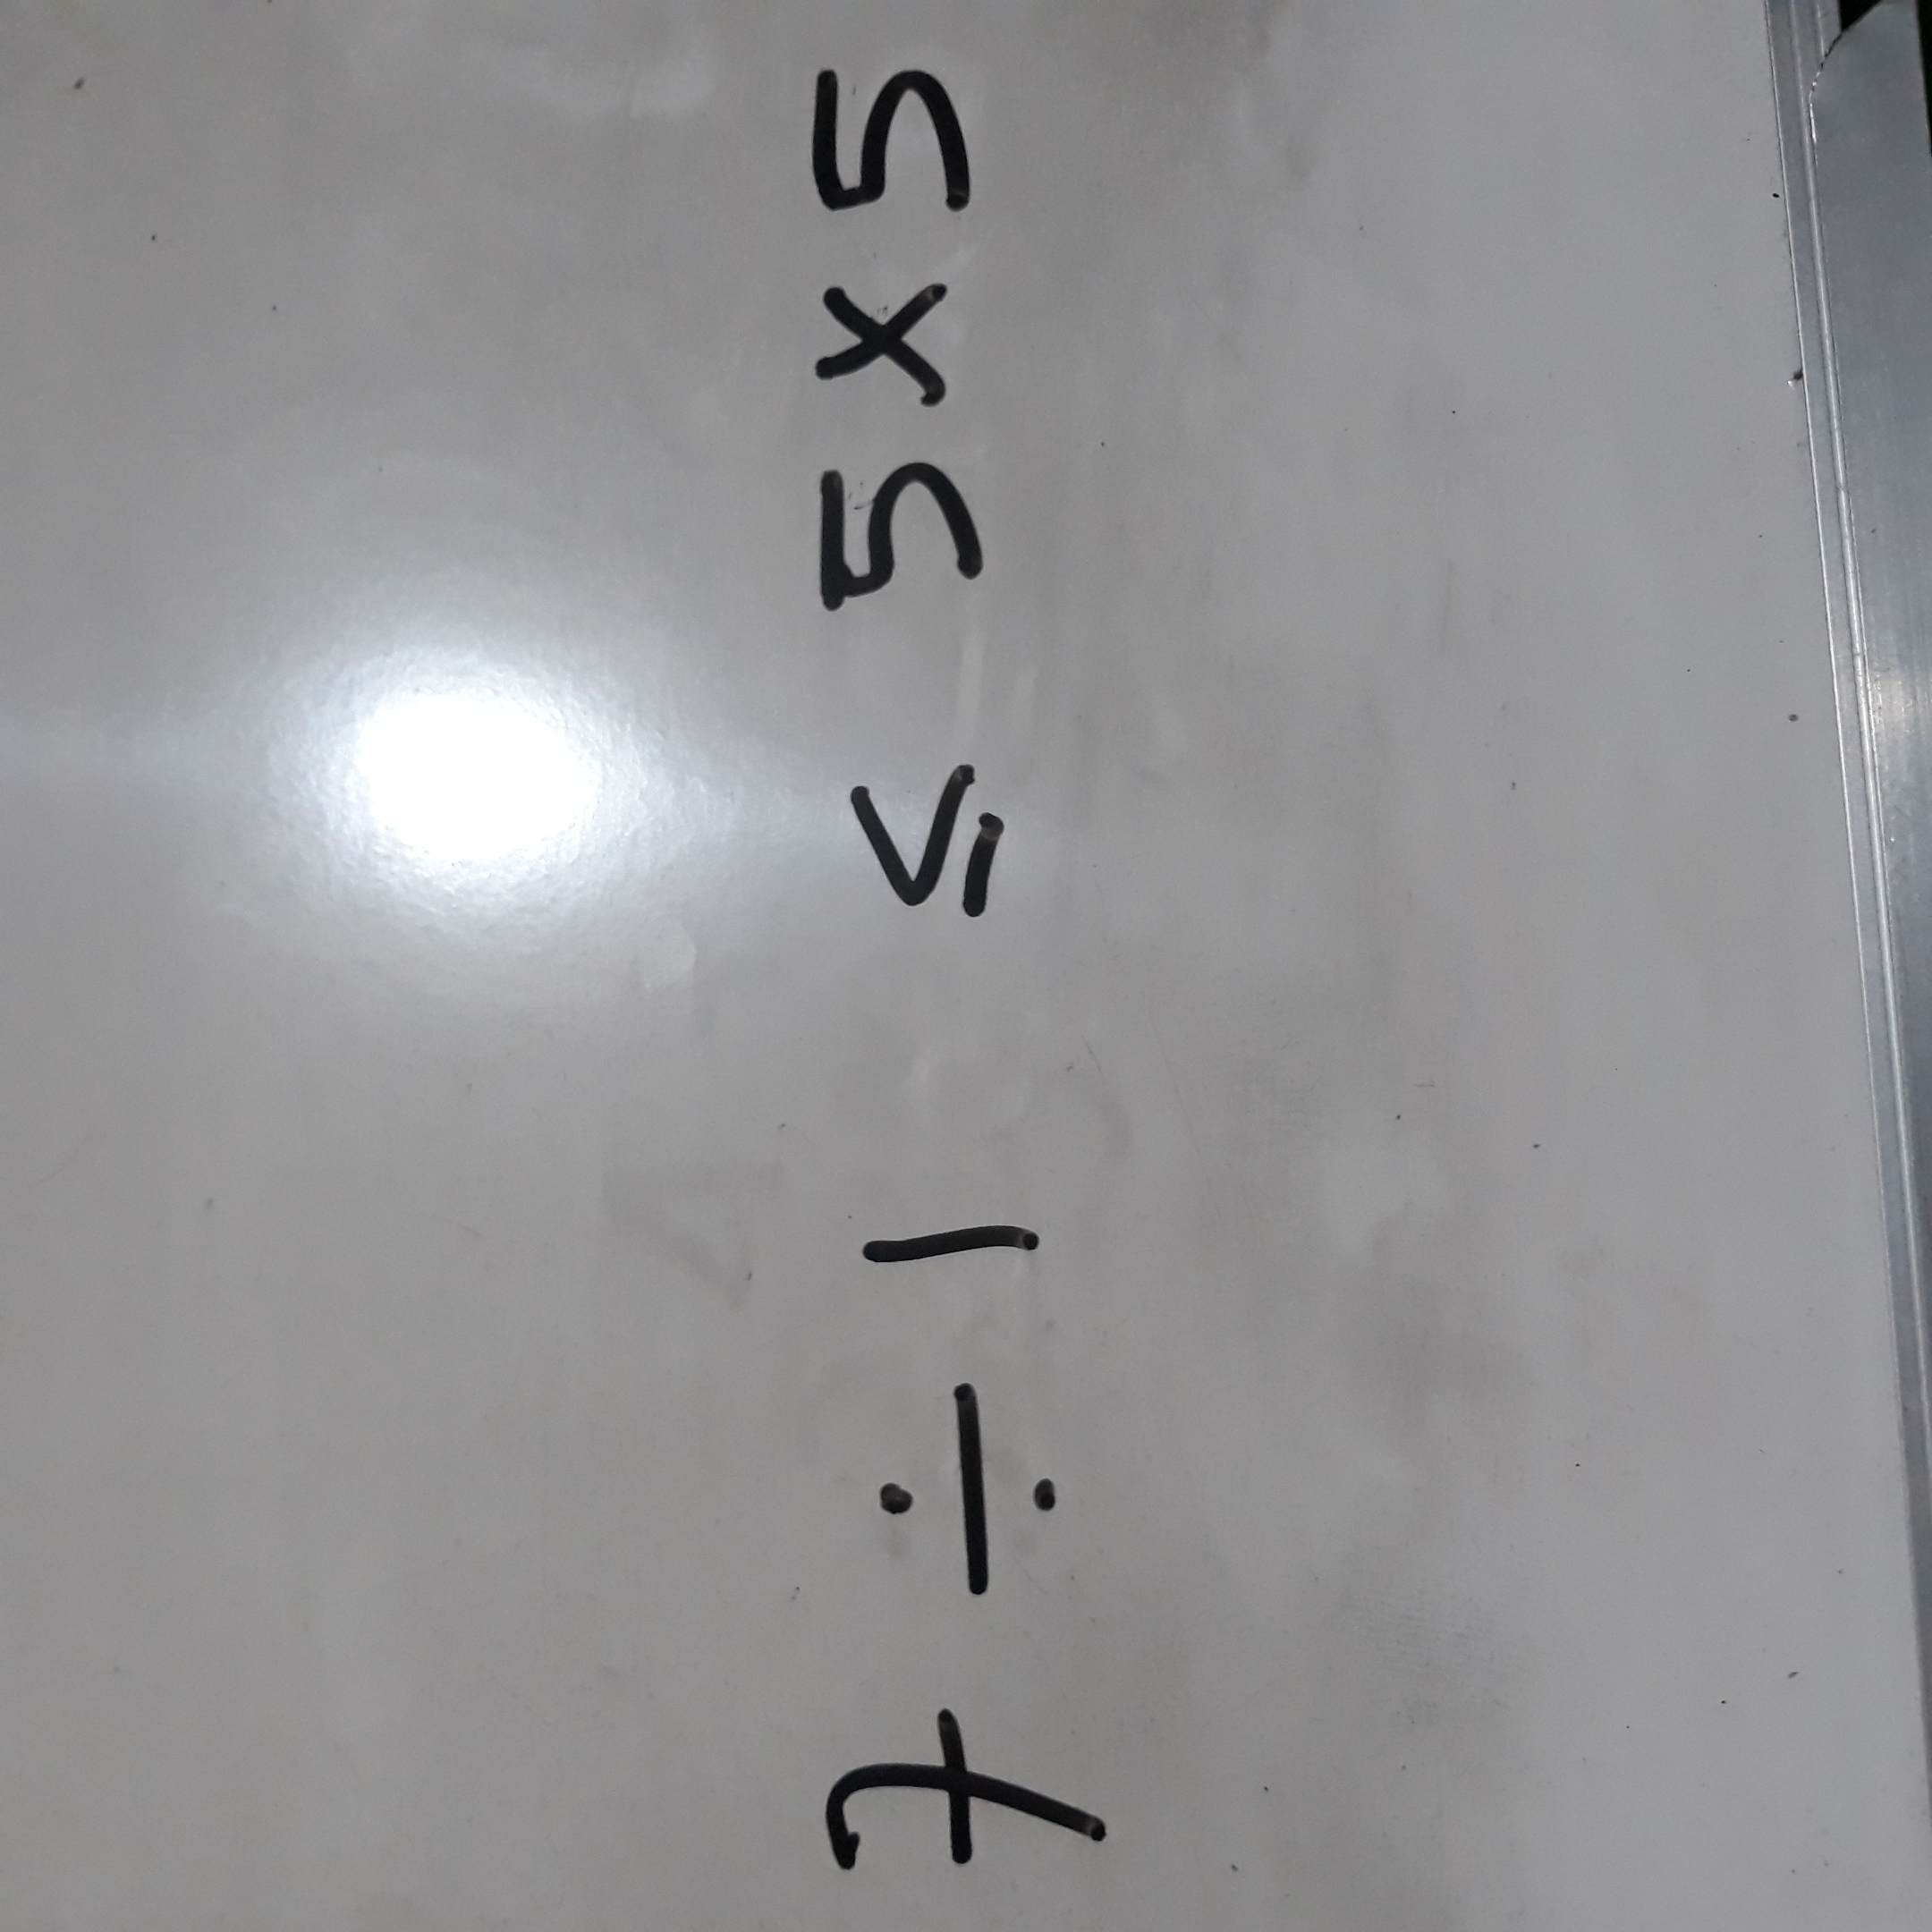 7 ÷ 1 ≤ 5 × 5